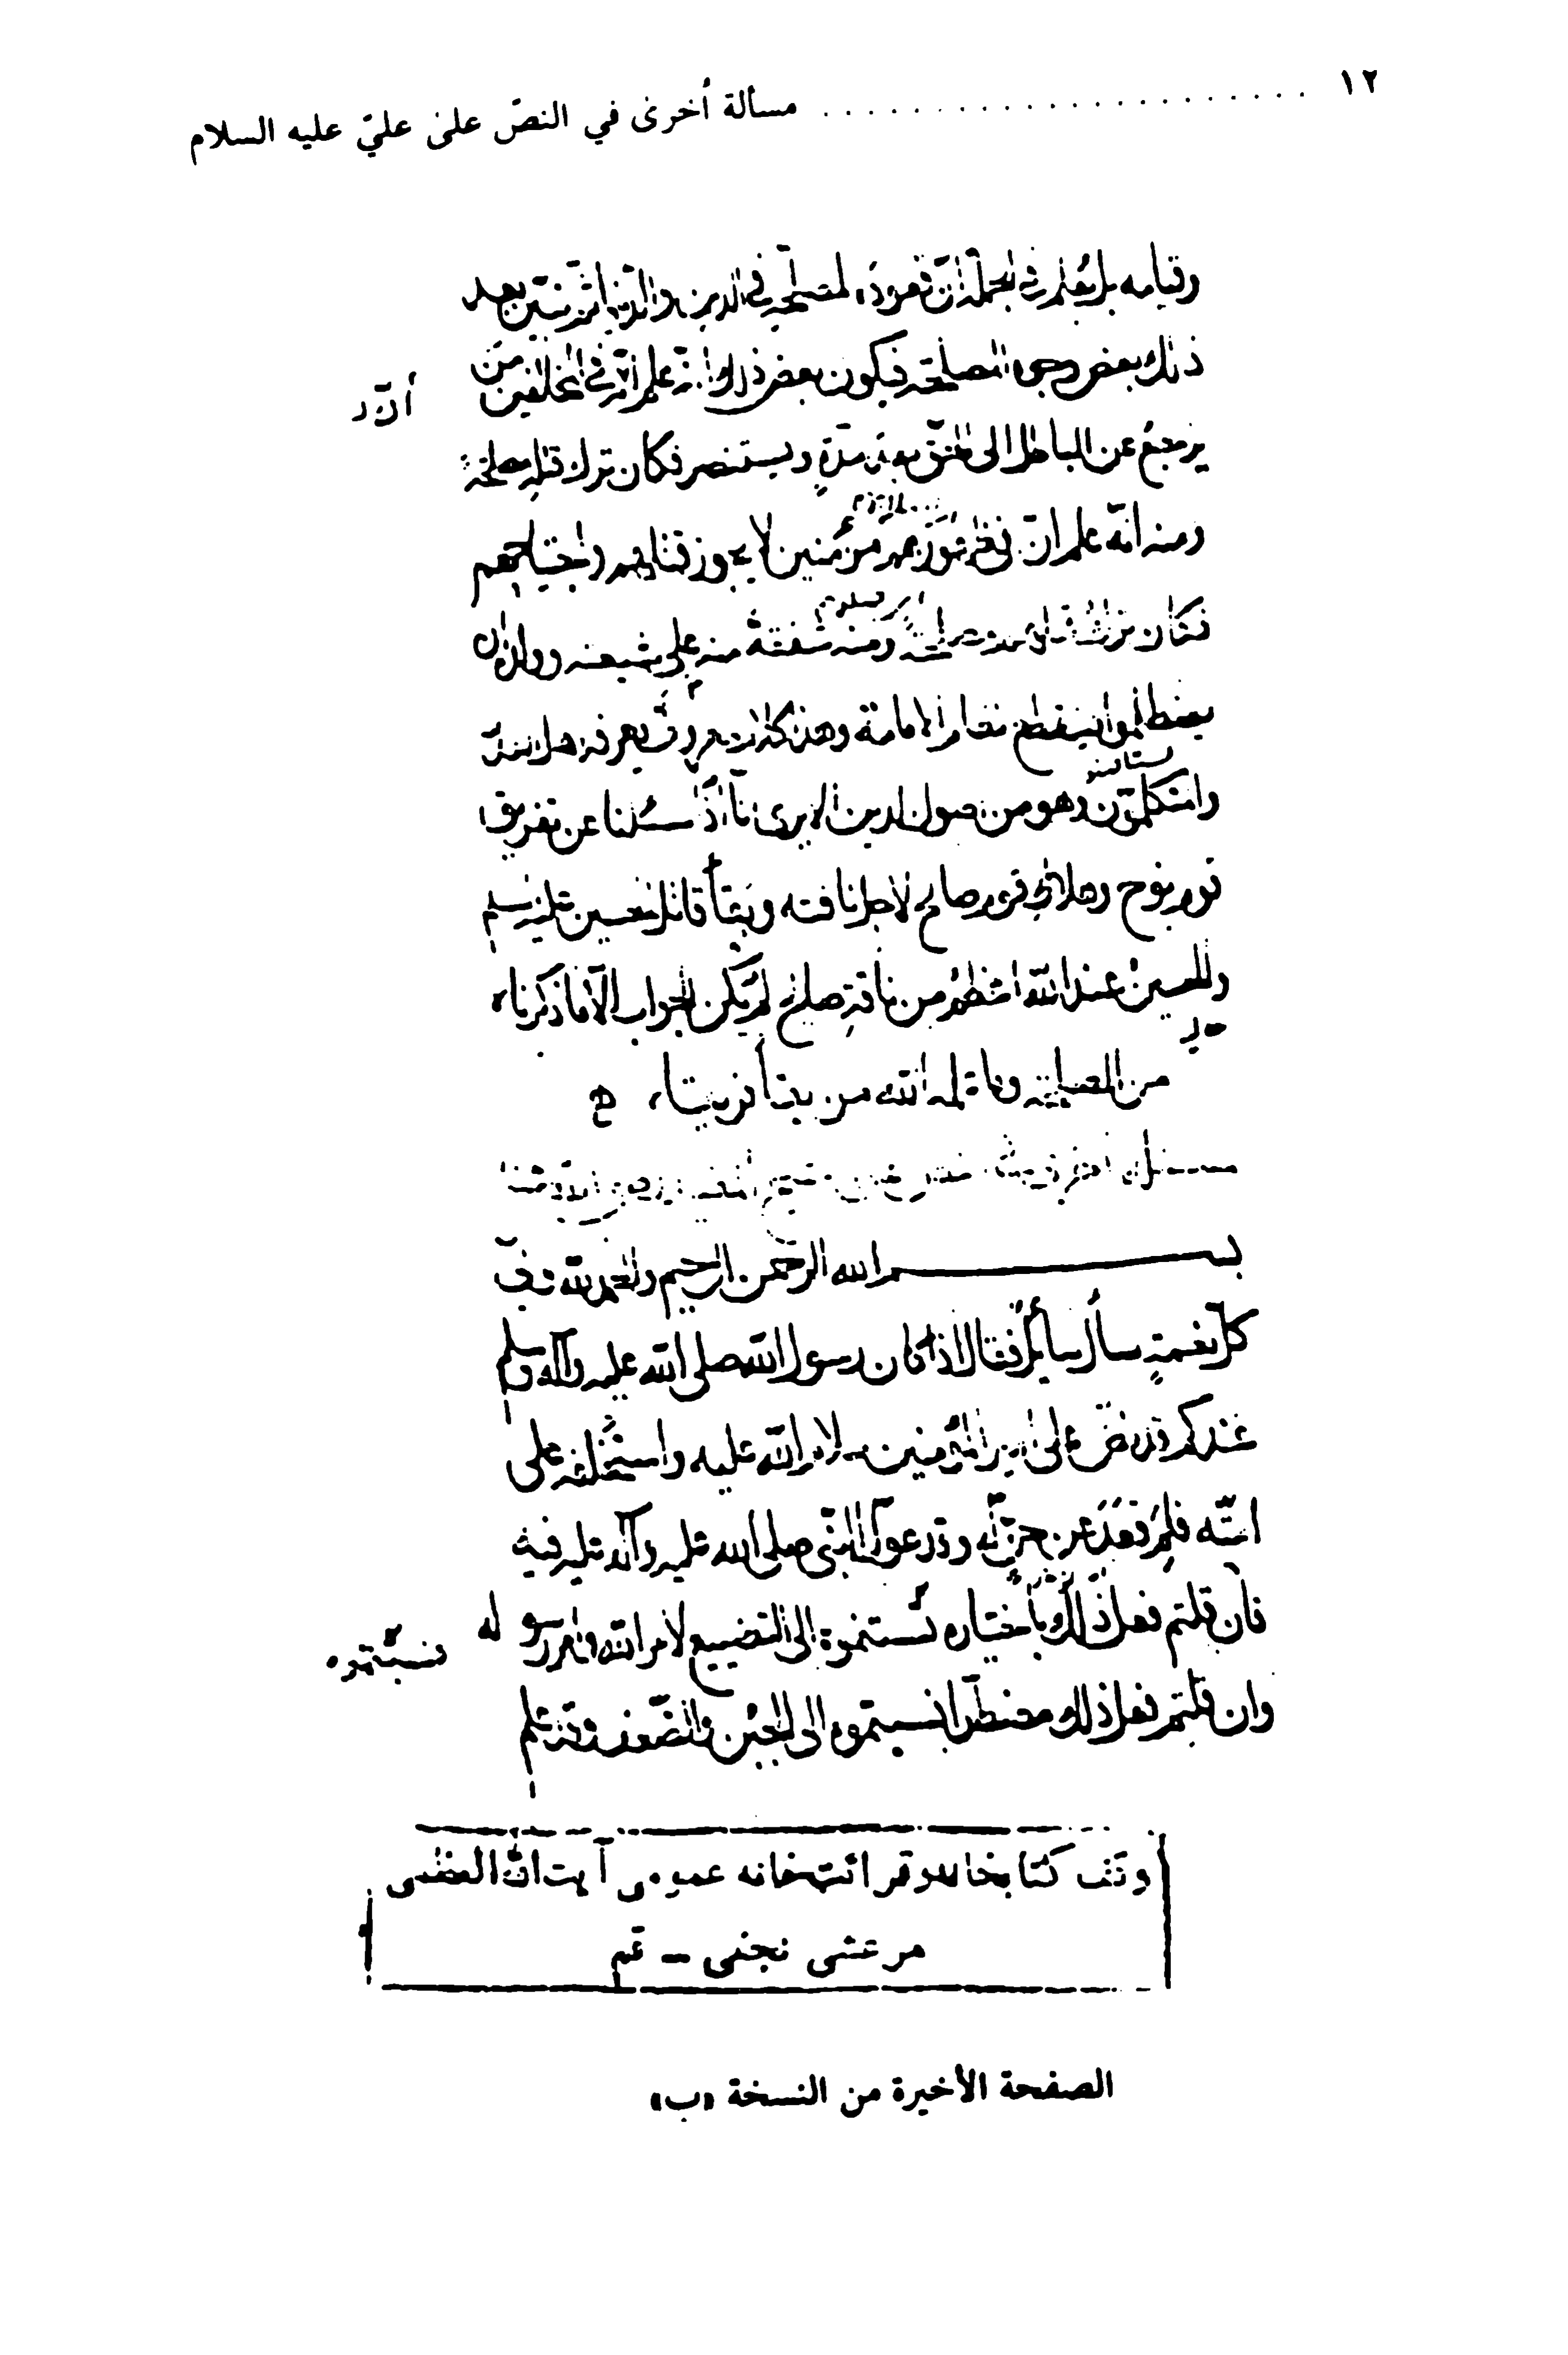 ١٢ ...................... مسألة أخرى في النصّ على عليّ عليه السلام
وقيامه بل يعلم في الجملة أنّ قعوده لمصلحة في الدين والدنيا ثم نبيّن بعد
ذلك بعض وجوه المصلحة فيكون بعض ذلك أنه علم أنّ في المخالفين من
يرجع عن الباطل إلى الحقّ بعد مدّةٍ ويستنصر فكان ترك قتله مصلحة
ومنه أنّه علم أنّ في ظهورهم مؤمنين لا يجوز قتلهم واجتياحهم
فكان ومنه شفقة منه على شيعته وولده أن
يصطلموا فينقطع نظام الإمامة وهذا معروف يعرفه
والمتكلمون وهو من أصول الدين ألا يرى أنّا إذا سئلنا عن تغريق
قوم نوح وهلاك قوم صالح لأجل ناقته وبقاء قاتل الحسين عليه السلم
وللحسين عند الله أعظم من ناقة صالح لم يكن الجواب إلّا ما ذكرناه
من المصلحة وما علمه الله من بقاء
بسم الله الرحمن الرحيم والحمد لله
كلّ نعمةٍ سأل سائل فقال إذا كان رسول الله صلى الله عليه وآله وسلم
عندكم قد نصّ على أمير المؤمنين سلام الله عليه واستخلفه على
أمّته فلِمَ قعد عن حقّه وقد عوّل النبيّ صلى الله عليه وآله عليه فيه
فإن قلتم فعل ذلك باختياره نسبتموه إلى التضييع لأمر الله وأمر رسوله
نسبتموه
وإن قلتم فعل ذلك مضطرّاً نسبتموه إلى الجبن والضعف وقد علم
وقف كتابخانه وقرائتخانه عمومى آيت الله العظمى
مرعشى نجفى - قم
الصفحة الأخيرة من النسخة «ب»